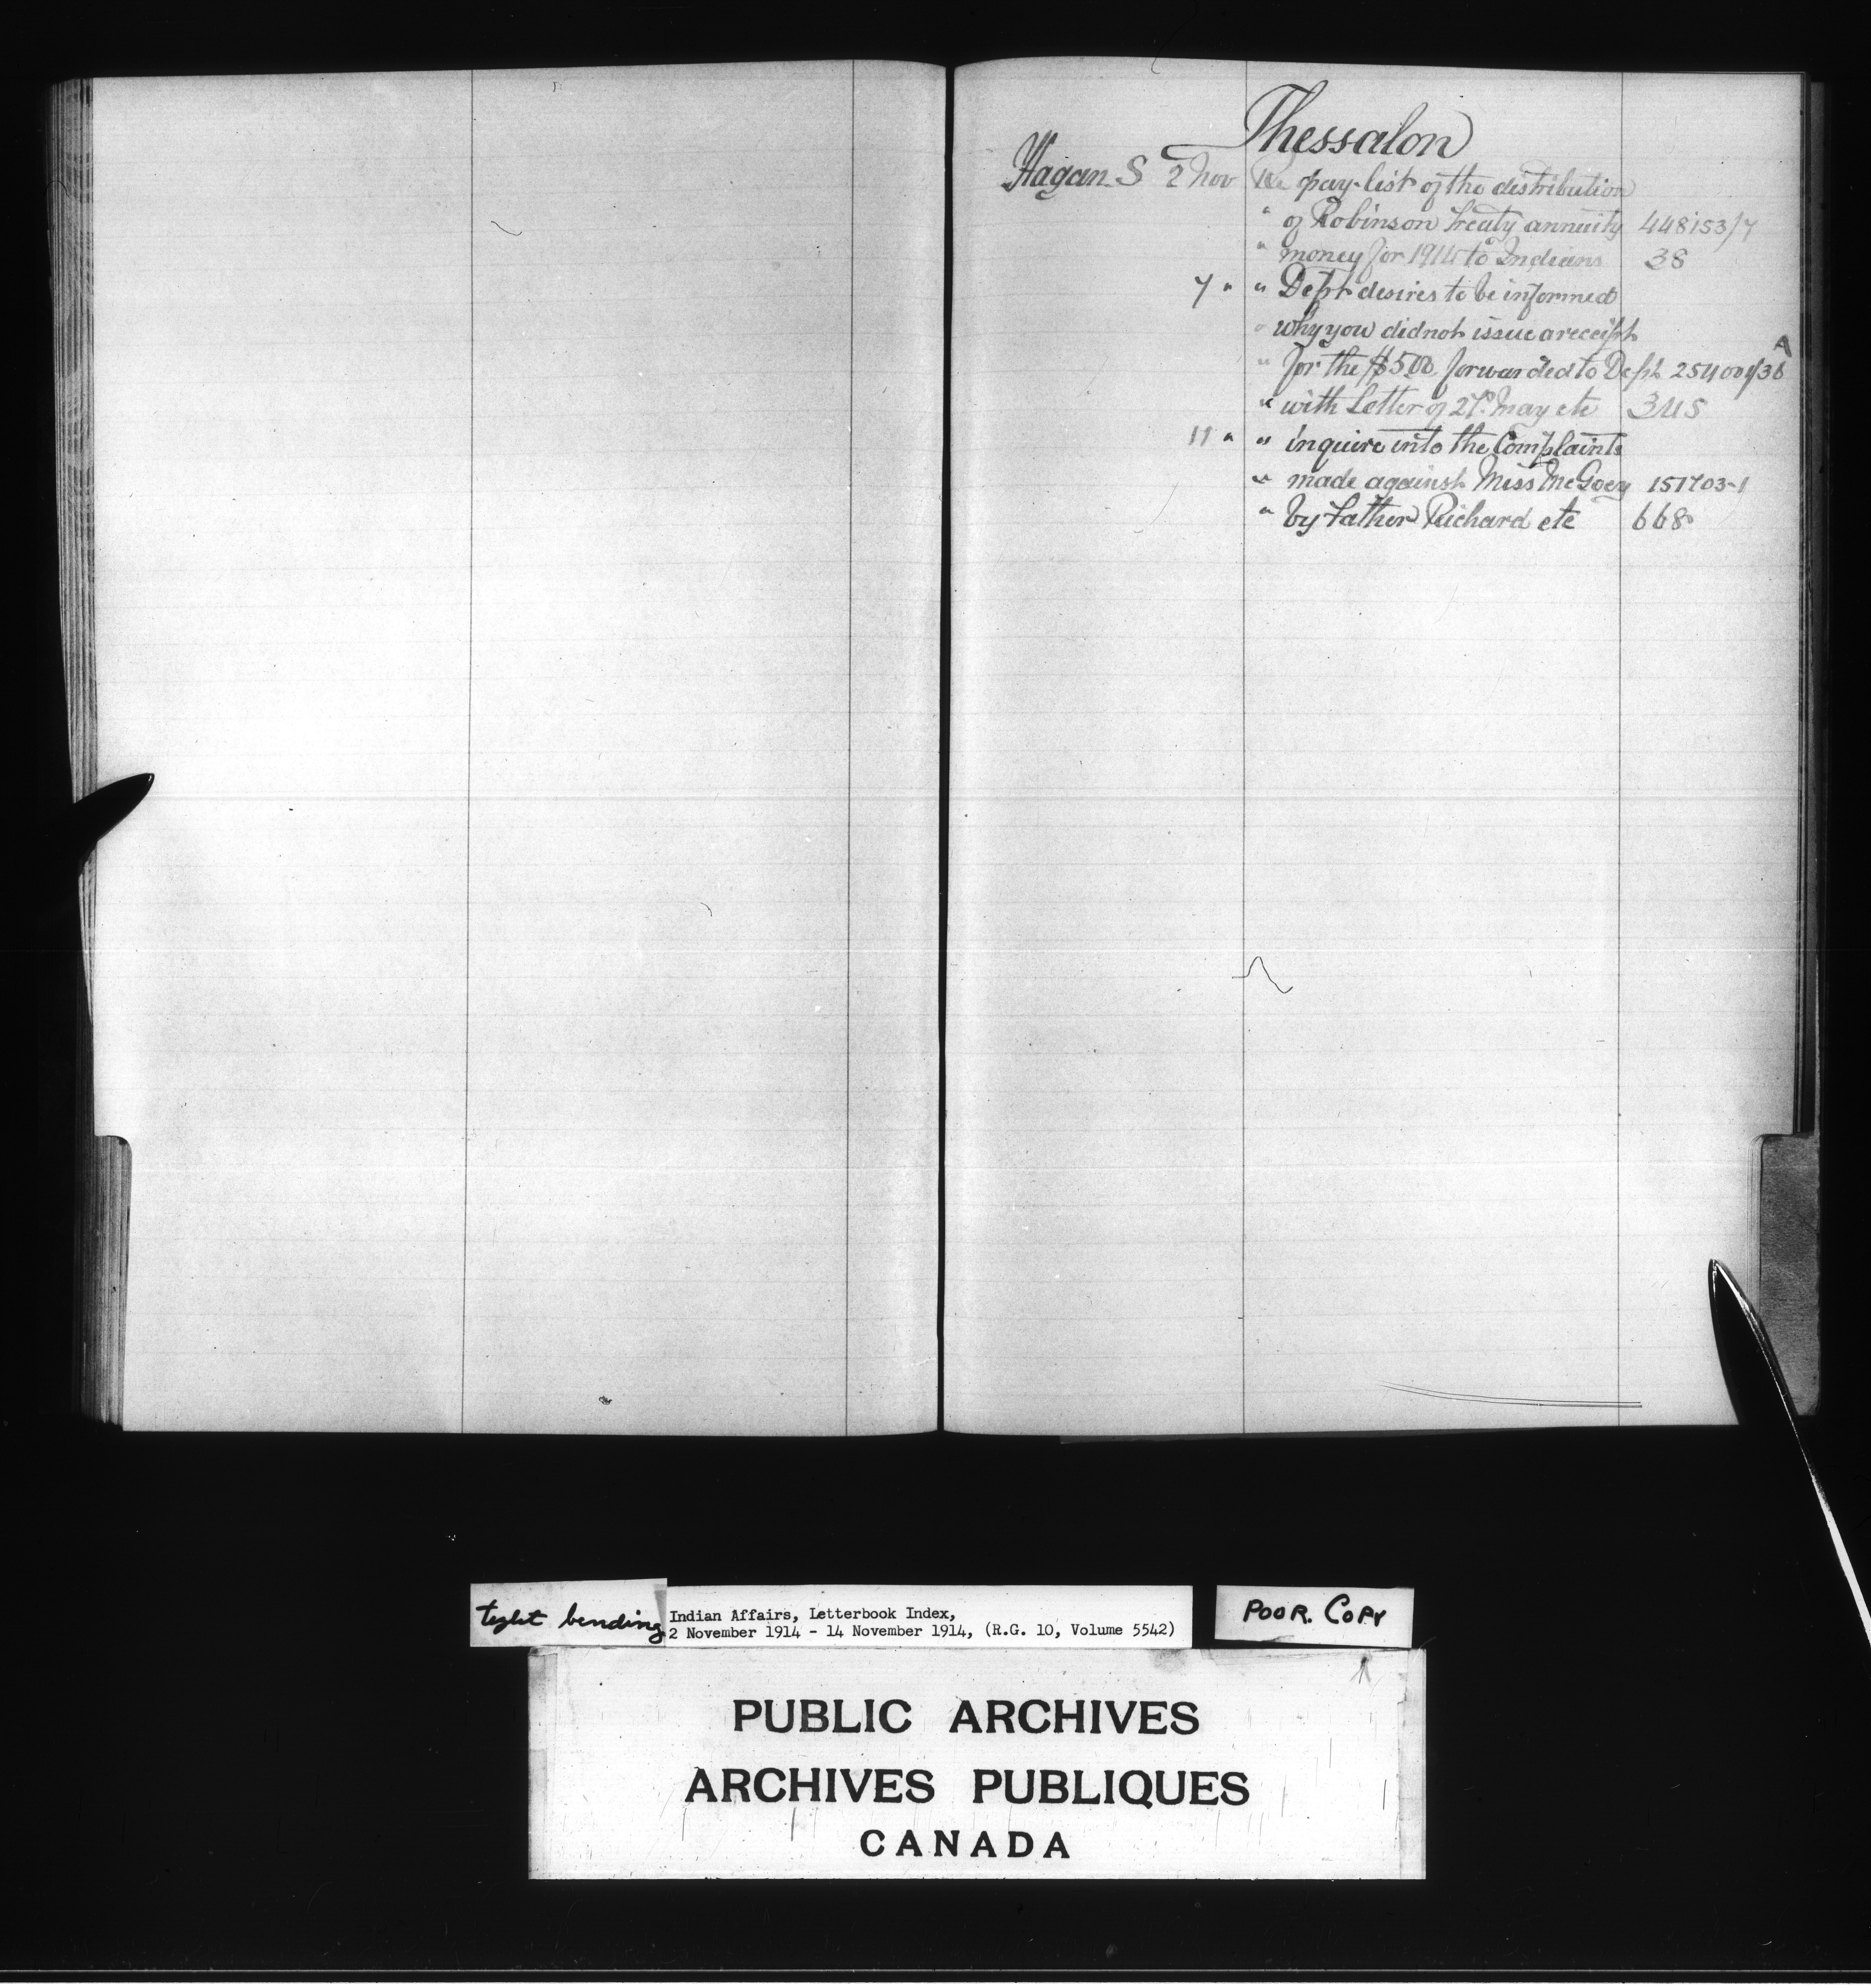 Thessalon
Hagan S 2 Nov Re pay-list of the distribution
" of Robinson Treaty annuity 448153/7
" money for 1914 to Indians 38
7 " " Dept desires to be informed
" why you did not issue a receipt
" for the $5.00 forwarded to Dept A
" with Letter of 27th May etc 345
11 " " inquire into the Complaints
" made against Miss McGoey 151703-1
" by Father Richard etc 668
tight bending
Indian Affairs, Letterbook Index,
2 November 1914 - 14 November 1914, (R.G. 10, Volume 5542)
POOR. COPY
PUBLIC ARCHIVES
ARCHIVES PUBLIQUES
CANADA